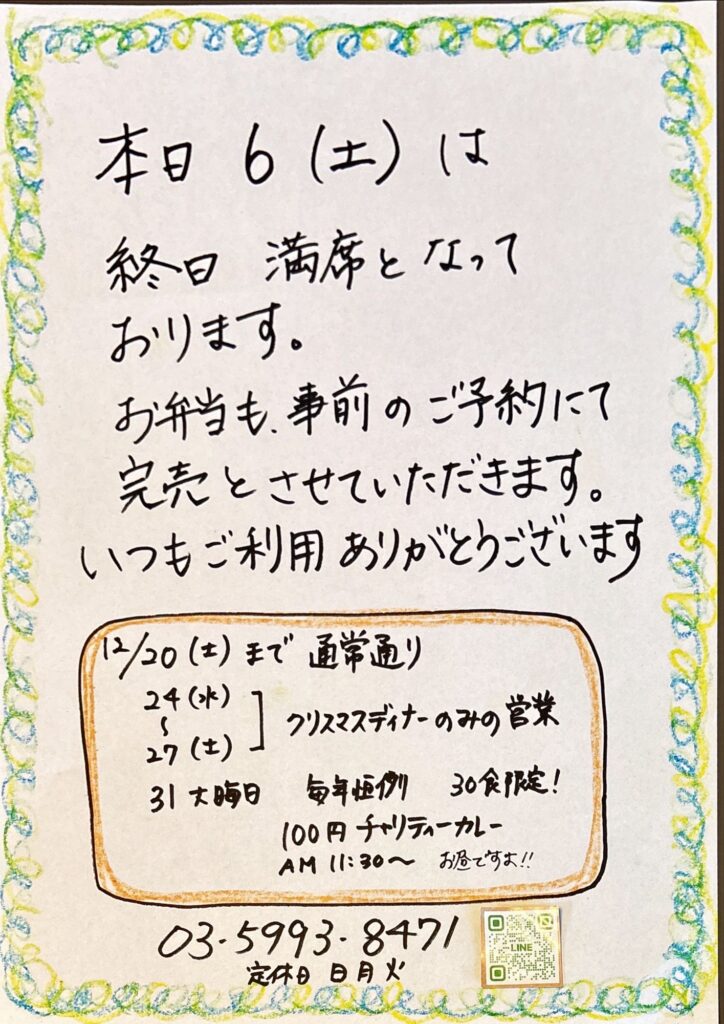 本日 6 (土) は
終日 満席となって
おります。
お弁当も、事前のご予約にて
完売とさせていただきます。
いつもご利用ありがとうございます
12/20 (土) まで 通常通り
24 (水)
〜
27 (土)
クリスマスディナーのみの営業
31 大晦日 毎年恒例 30食限定!
100円 チャリティーカレー
AM 11:30〜 お昼ですよ!!
03-5993-8471
定休日 日月火
LINE